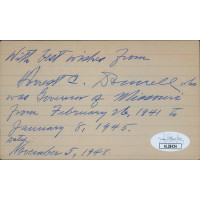 With best wishes from
Forrest C. Donnell who
was Governor of Missouri
from February 26, 1941 to
January 8, 1945.
Date,
November 5, 1948.
JSA